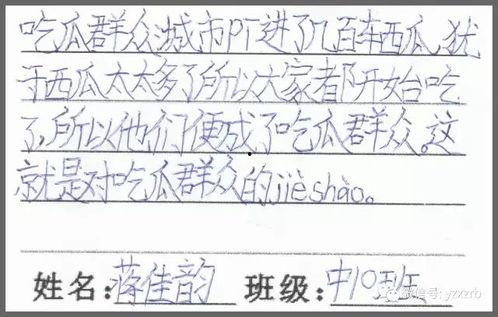 吃瓜群众城市门进了几百车西瓜,犹
于西瓜太太多了所以大家都开始吃
了,所以他们便成了吃瓜群众。这
就是对吃瓜群众的jièshào。
姓名:蒋佳韵 班级:中10班
微信号: yzxzrb